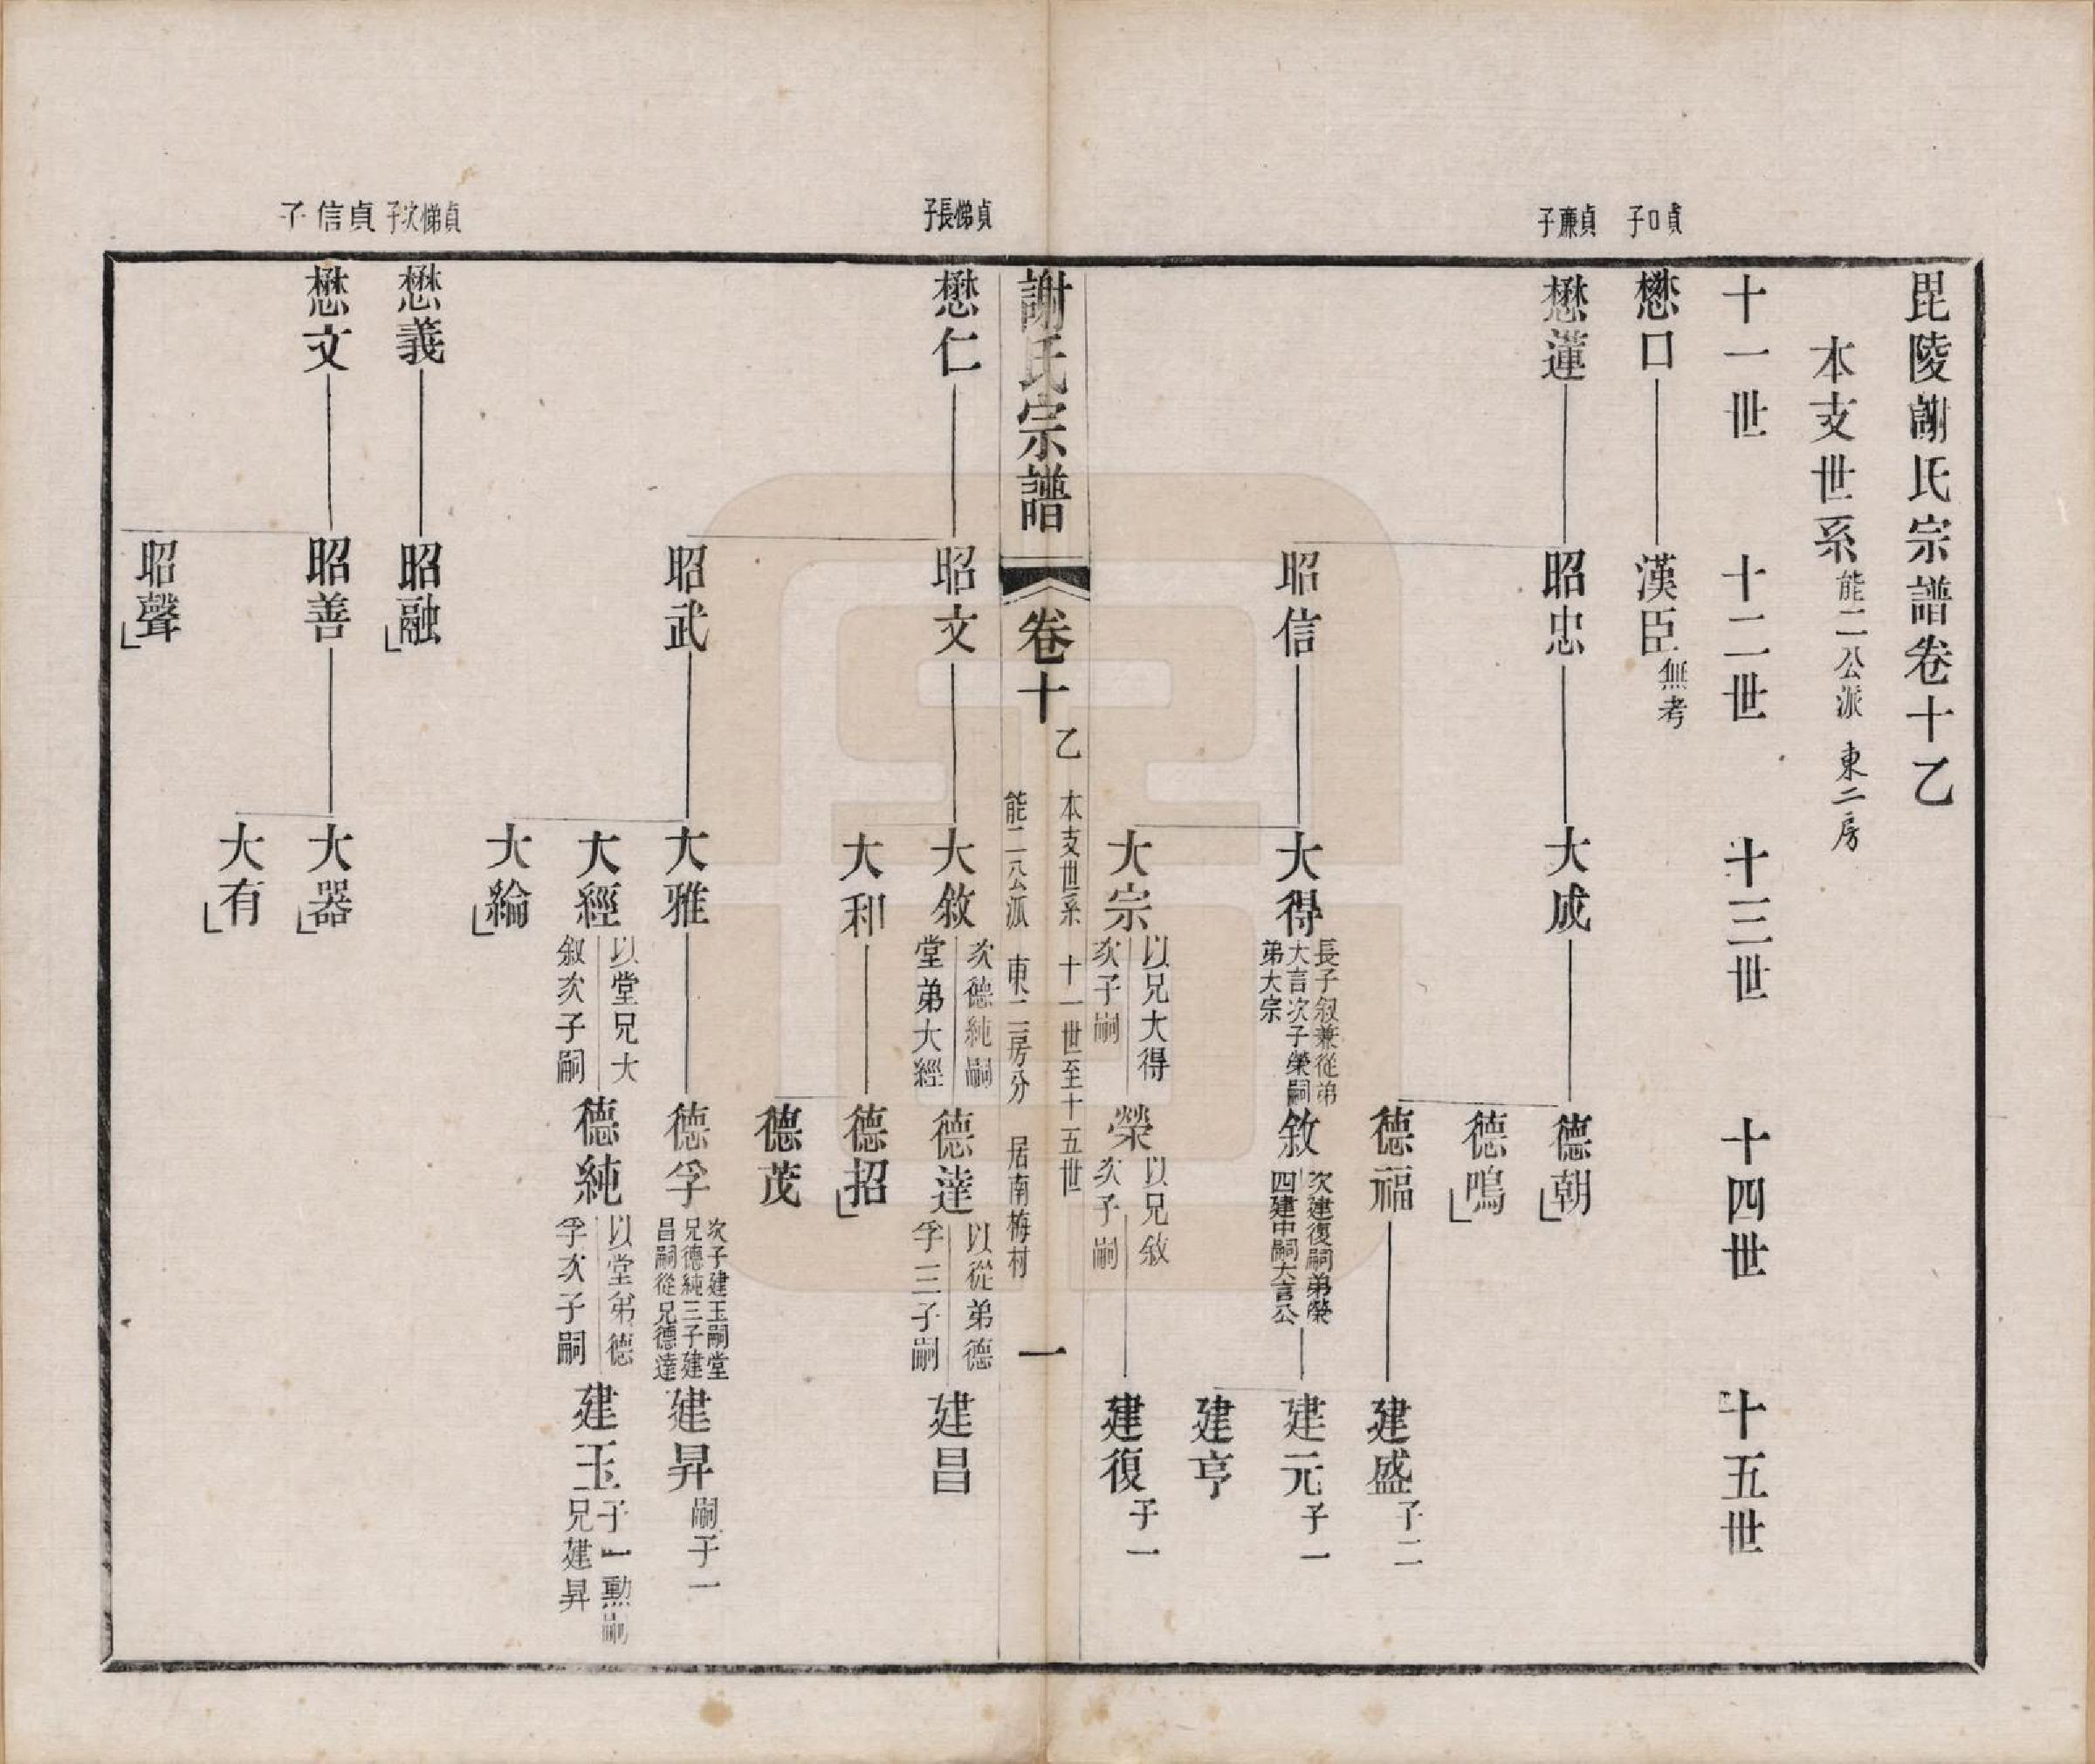 毘陵謝氏宗譜卷十乙
本支世系能二公派 東二房
十一世 十二世 十三世 十四世 十五世
貞口子
懋口 漢臣無考
貞廉子
懋蓮 昭忠 大成 德朝
德鳴
德福 建盛子二
昭信 大得長子叙兼從弟大言次子榮嗣弟大宗 敘次建復嗣弟榮四建中嗣大言公 建元子一
建亨
大宗以兄大得次子嗣 榮以兄敘次子嗣 建復子一
謝氏宗譜 卷十乙 本支世系 十一世至十五世 能二公派 東二房分 居南梅村 一
貞悌長子
懋仁 昭文 大敘次德純嗣堂弟大經 德達以從弟德孚三子嗣 建昌
大和 德招
德茂
昭武 大雅 德孚次子建玉嗣堂兄德純三子建昌嗣從兄德達 建昇嗣子一
大經以堂兄大叙次子嗣 德純以堂弟德孚次子嗣 建玉子一勳嗣兄建昇
大綸
貞悌次子
懋義 昭融
貞信子
懋文 昭善 大器
大有
昭聲